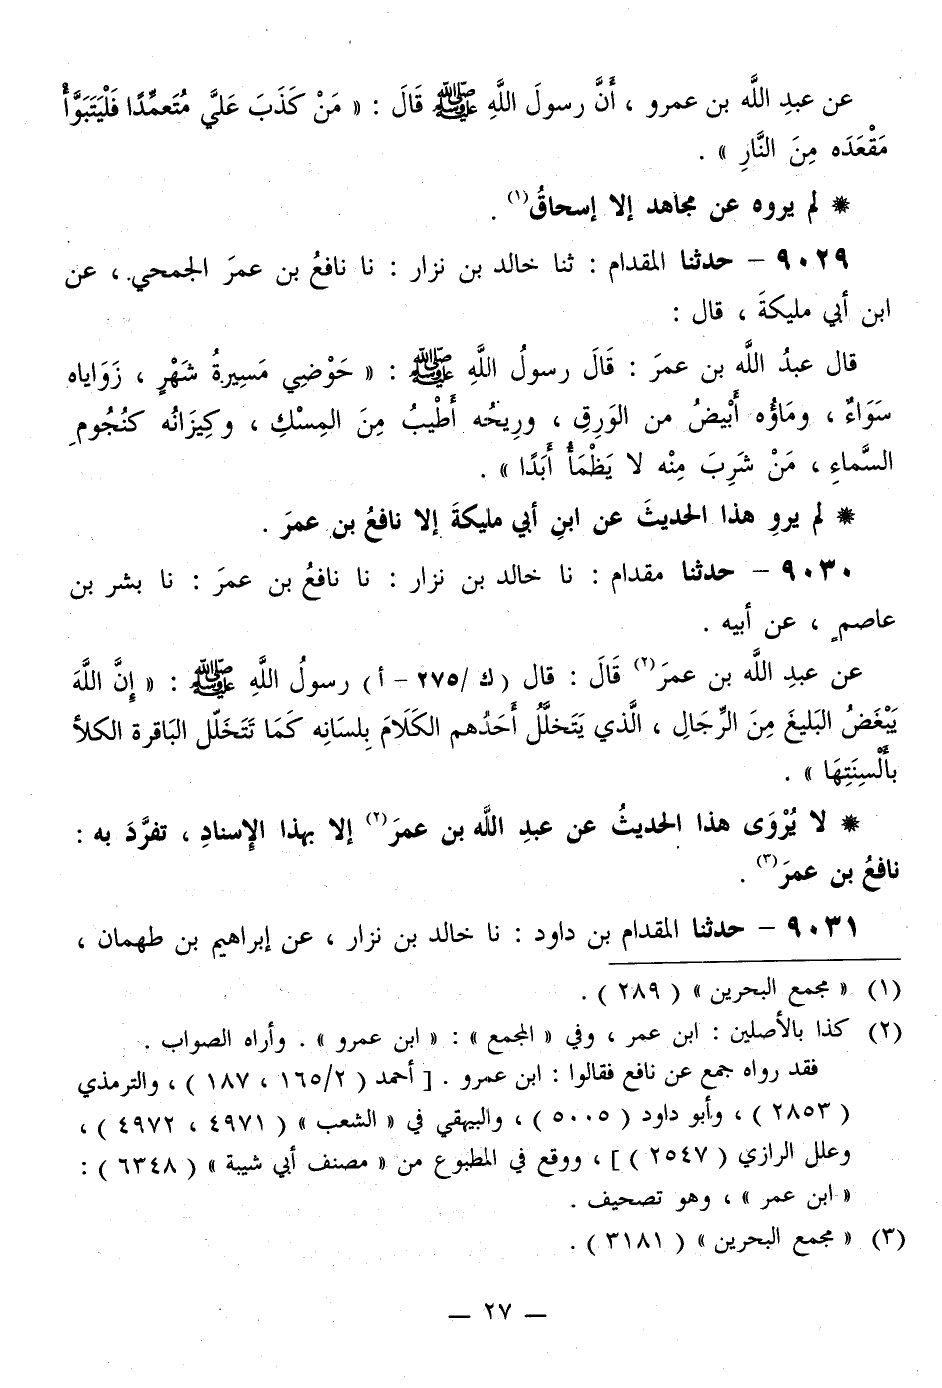 عن عبدِ اللَّه بن عمرو ، أَنَّ رسولَ اللَّهِ ﷺ قَالَ : « مَنْ كَذَبَ عَليَّ مُتَعمِّدًا فَلْيَتَبَوَّأْ
مَقْعَدَه مِنَ النَّارِ » .
* لم يروه عن مجاهد إلا إسحاقُ(١) .
٩٠٢٩ – حدثنا المقدام : ثنا خالد بن نزار : نا نافعُ بن عمرَ الجمحي ، عن
ابن أبي مليكةَ ، قال :
قال عبدُ اللَّه بن عمرَ : قَالَ رسولُ اللَّهِ ﷺ : « حَوْضِي مَسِيرةُ شَهْرٍ ، زَوَاياه
سَوَاءٌ ، ومَاؤُه أَبْيضُ من الوَرِقِ ، ورِيحُه أَطْيبُ مِنَ المِسْكِ ، وكِيزَانُه كنُجُومِ
السَّماءِ ، مَنْ شَرِبَ مِنْه لا يَظْمَأُ أَبَدًا » .
* لم يروِ هذا الحديثَ عن ابنِ أبي مليكةَ إلا نافعُ بن عمرَ .
٩٠٣٠ – حدثنا مقدام : نا خالد بن نزار : نا نافعُ بن عمرَ : نا بشر بن
عاصمٍ ، عن أبيه .
عن عبدِ اللَّه بن عمرَ(٢) قَالَ : قال (ك /٢٧٥ – أ) رسولُ اللَّهِ ﷺ : « إِنَّ اللَّهَ
يَبْغَضُ البَليغَ مِنَ الرِّجَالِ ، الَّذي يَتَخلَّلُ أَحَدُهم الكَلَامَ بِلسَانِه كَمَا تَتَخَلّل البَاقرة الكلأ
بأَلْسِنَتِهَا » .
* لا يُرْوَى هذا الحديثُ عن عبدِ اللَّه بن عمرَ(٢) إلا بهذا الإِسنادِ ، تفرَّدَ به :
نافعُ بن عمرَ(٣) .
٩٠٣١ – حدثنا المقدام بن داود : نا خالد بن نزار ، عن إبراهيم بن طهمان ،
(١) « مجمع البحرين » ( ٢٨٩ ) .
(٢) كذا بالأصلين : ابن عمر ، وفي « المجمع » : « ابن عمرو » . وأراه الصواب .
فقد رواه جمع عن نافع فقالوا : ابن عمرو . [ أحمد ( ١٦٥/٢ ، ١٨٧ ) ، والترمذي
( ٢٨٥٣ ) ، وأبو داود ( ٥٠٠٥ ) ، والبيهقي في « الشعب » ( ٤٩٧١ ، ٤٩٧٢ ) ،
وعلل الرازي ( ٢٥٤٧ ) ] ، ووقع في المطبوع من « مصنف أبي شيبة » ( ٦٣٤٨ ) :
« ابن عمر » ، وهو تصحيف .
(٣) « مجمع البحرين » ( ٣١٨١ ) .
— ٢٧ —